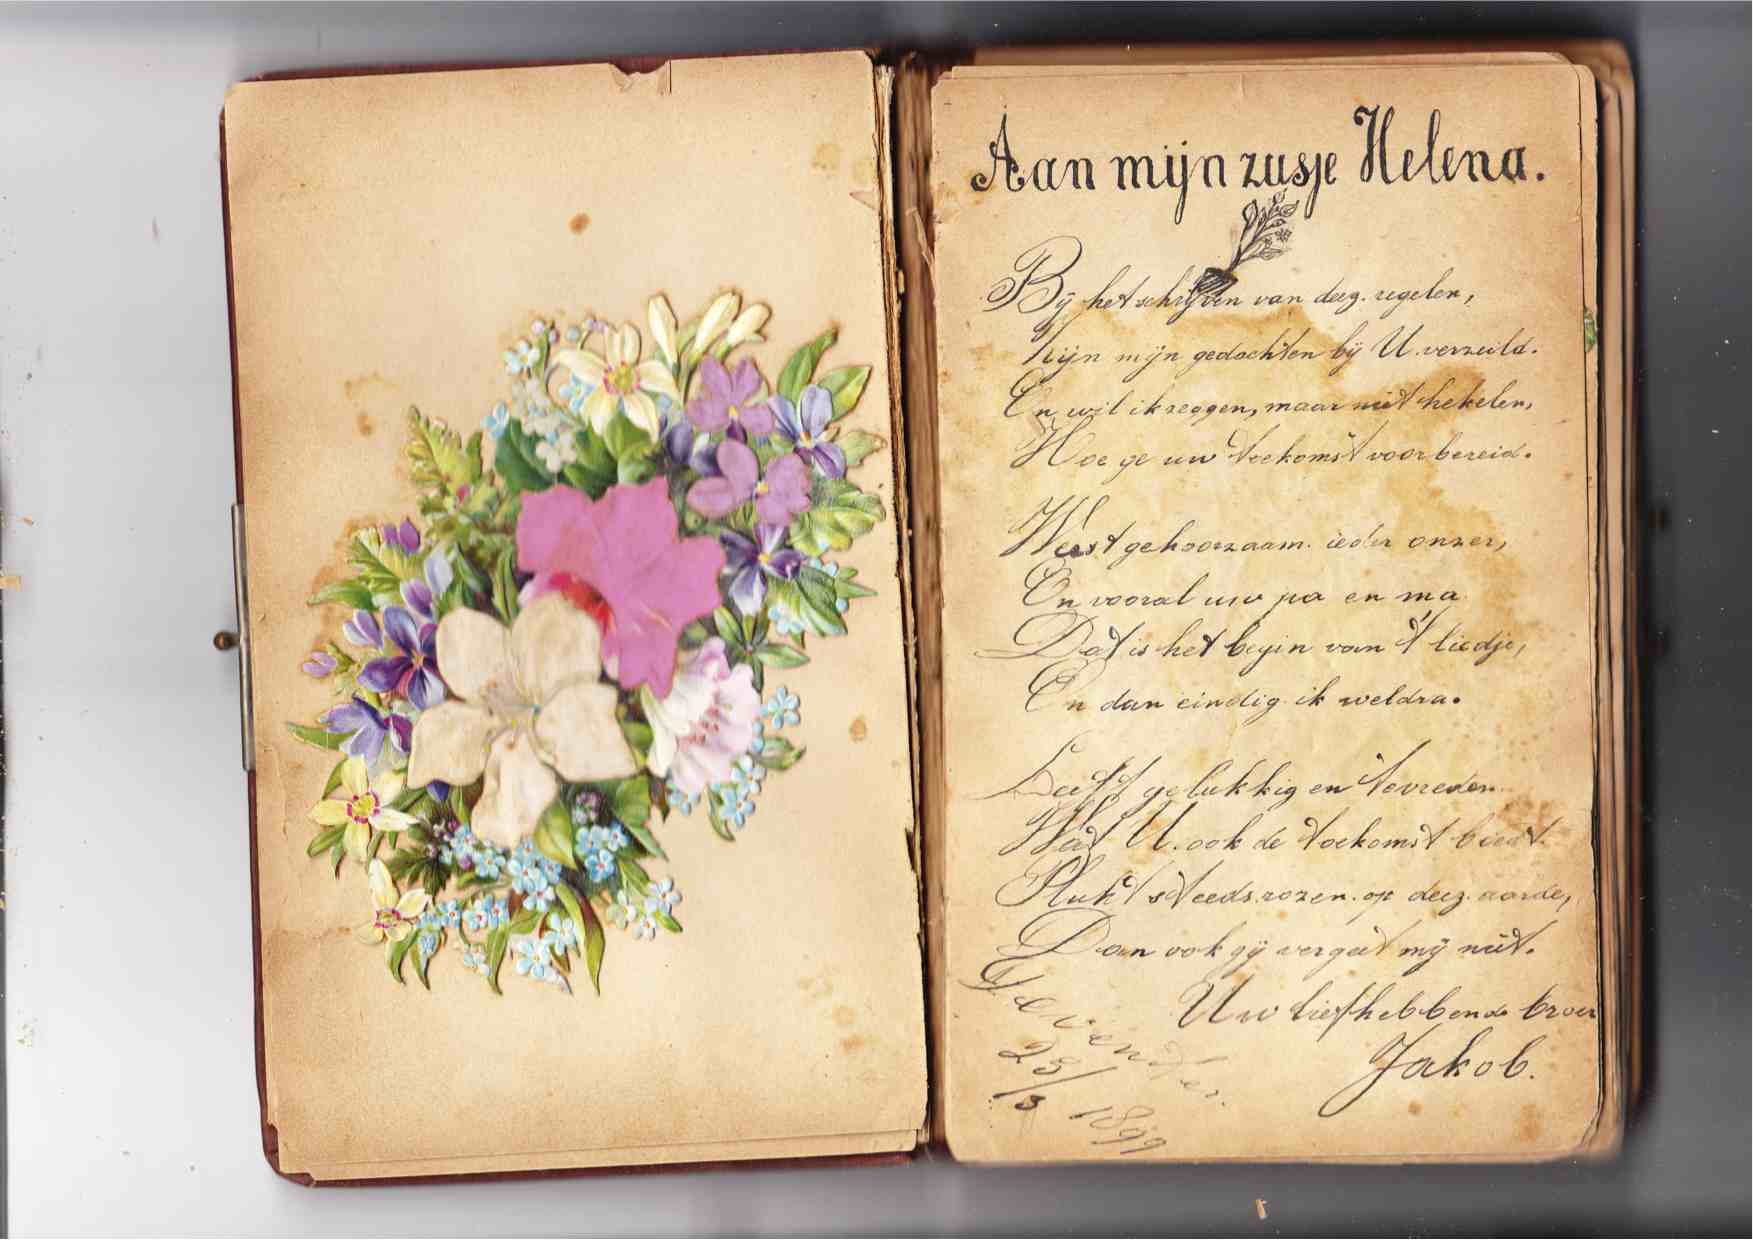 Aan mijn zusje Helena.
Bij het schrijven van deez. regelen,
Zijn mijn gedachten bij U verzeild.
En wil ik zeggen, maar niet hekelen,
Hoe ge uw toekomst voorbereid.
Weest gehoorzaam ieder onzer,
En vooral uw pa en ma
Dat is het begin van 't liedje,
En dan eindig ik weldra.
Leeft gelukkig en tevreden
Wat U ook de toekomst biedt.
Plukt steeds rozen op deez. aarde,
Dan ook gij vergeet mij niet.
Uw liefhebbende broer
Jakob.
Deventer.
23/3 1899